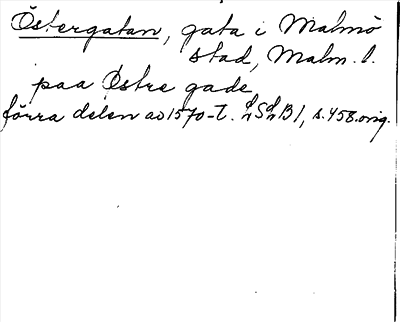 Östergatan, gata i Malmö
stad, Malm. l.
paa Østre gade
förra delen av 1570-t. LSLB1, s. 458. orig.